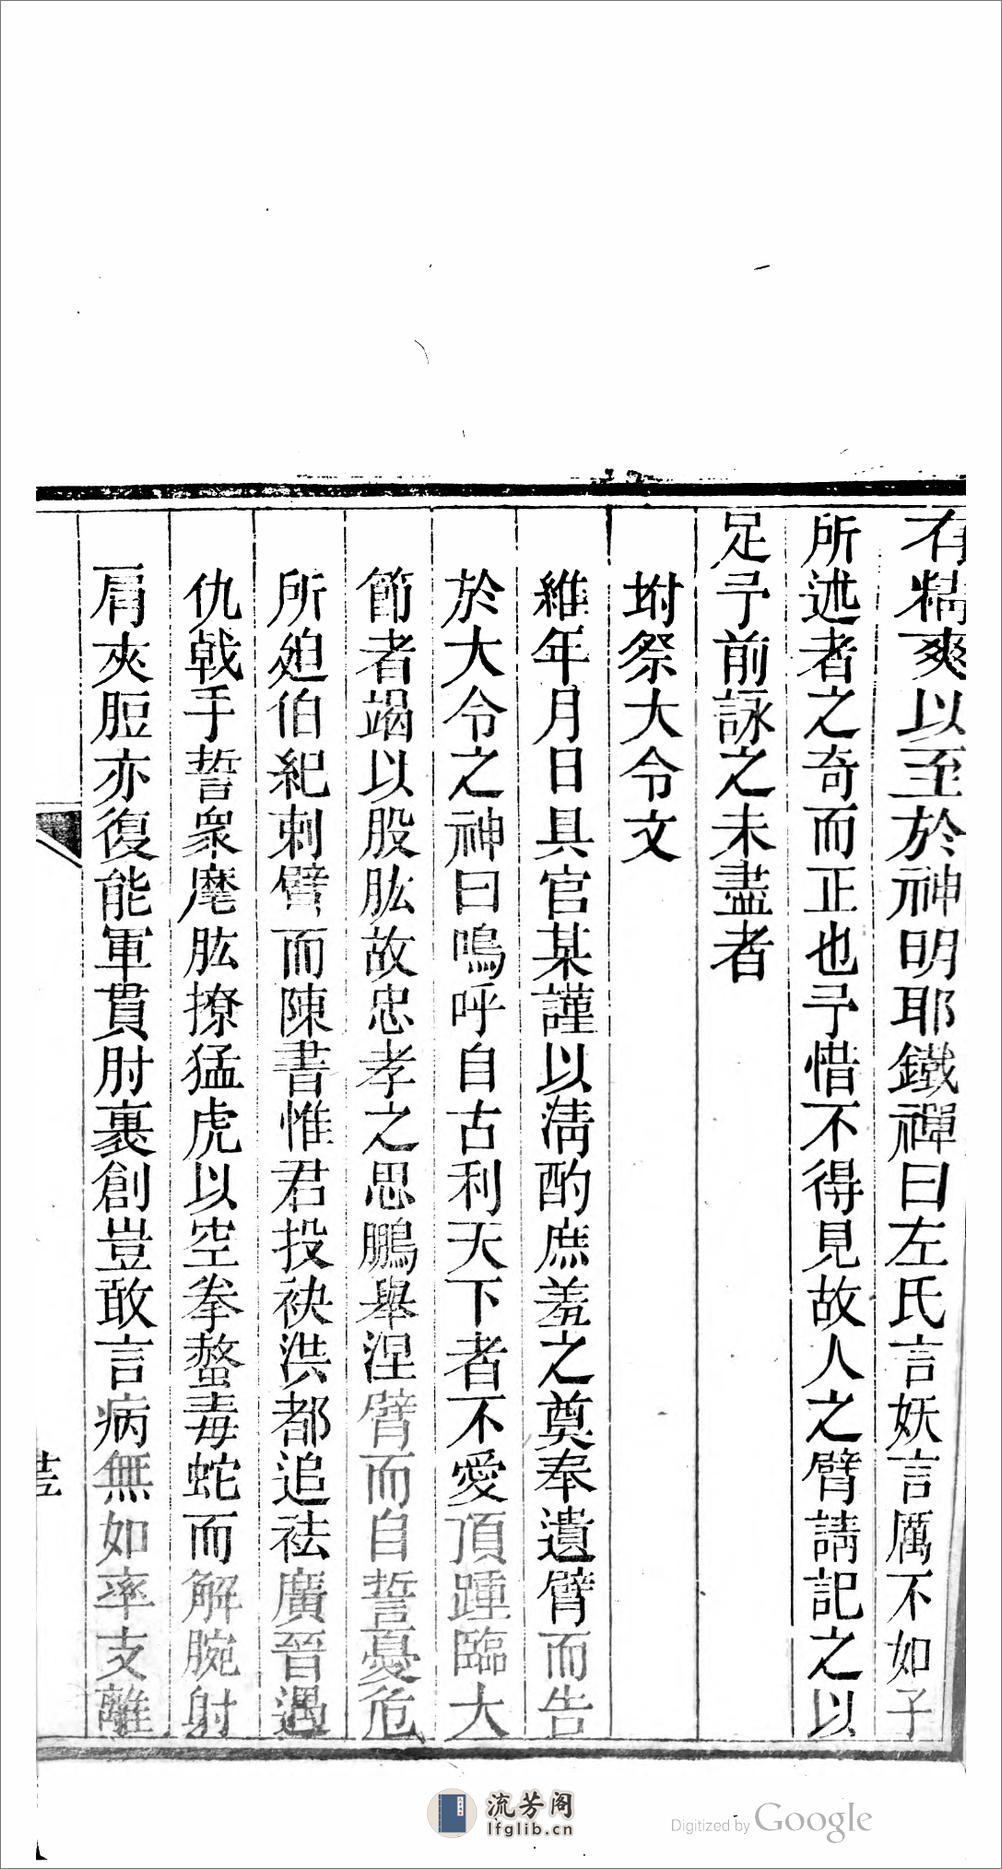 有精爽以至於神明耶鐵禪曰左氏言妖言厲不如子
所述者之奇而正也予惜不得見故人之臂請記之以
足予前詠之未盡者
坿祭大令文
維年月日具官某謹以清酌庶羞之奠奉遺臂而告
於大令之神曰嗚呼自古利天下者不愛頂踵臨大
節者竭以股肱故忠孝之思鵬舉涅臂而自誓憂危
所廹伯紀刺臂而陳書惟君投袂洪都追祛廣晉遇
仇戟手誓衆麾肱撩猛虎以空拳螫毒蛇而解腕射
肩夾脰亦復能軍貫肘裹創豈敢言病無如率支離
流芳阁
lfglib.cn
Digitized by Google